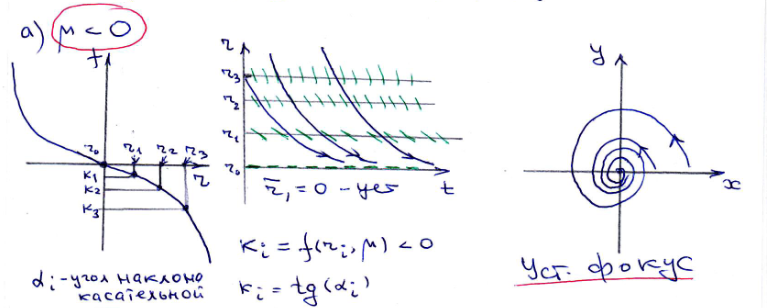 а) μ < 0
f
r₀ r₁ r₂ r₃
r
k₁
k₂
k₃
αᵢ-угол наклона
касательной
r
r₃
r₂
r₁
r₀
t
r̄₁ = 0 - уст
kᵢ = f(rᵢ, μ) < 0
kᵢ = tg(αᵢ)
y
x
Уст. фокус